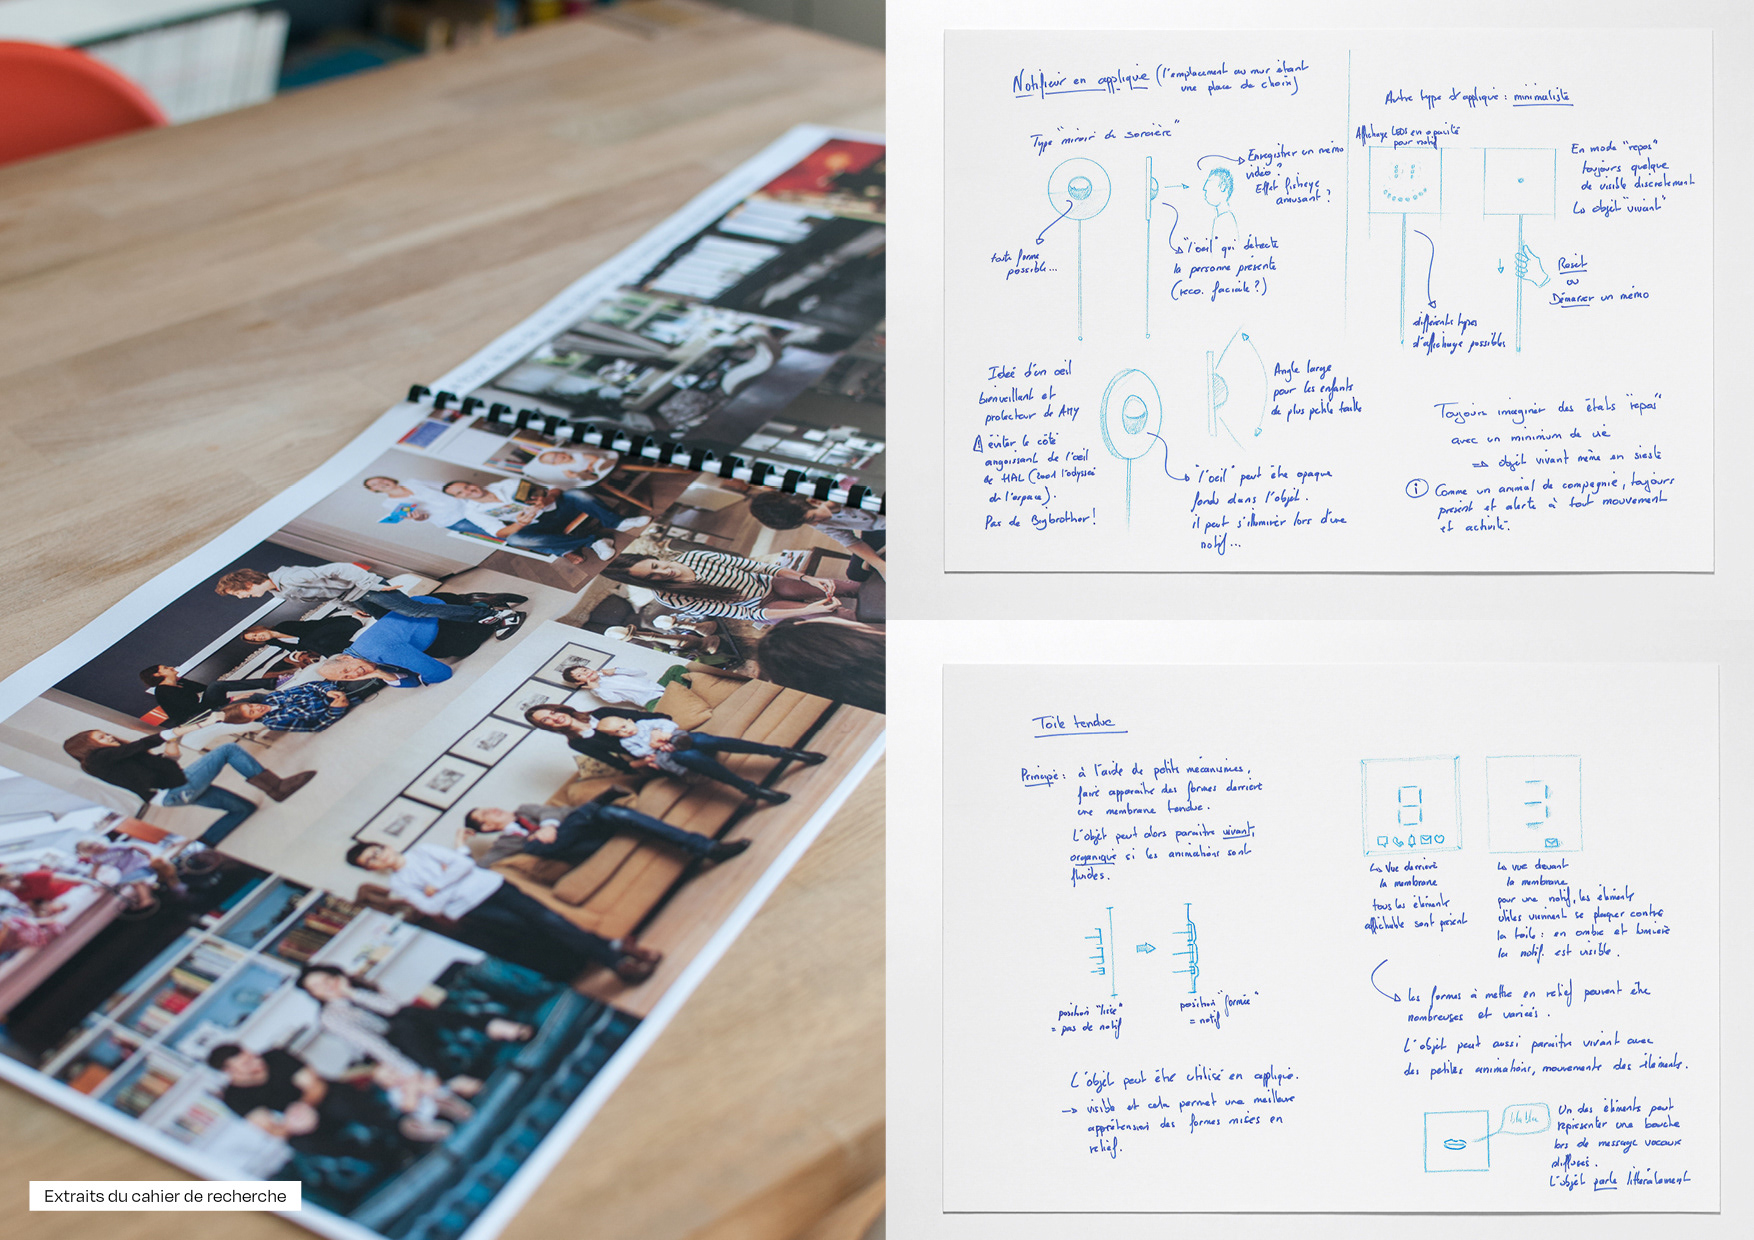 Notifieur en applique (l'emplacement au mur étant
une place de choix)
Type "miroir de sorcière"
Enregistrer un mémo
vidéo ?
Effet fisheye
amusant ?
toute forme
possible...
"l'oeil" qui détecte
la personne présente
(reco. faciale ?)
Idée d'un oeil
bienveillant et
protecteur de AMY
éviter le côté
angoissant de l'oeil
de HAL (2001 l'odyssé
de l'espace).
Pas de Bigbrother !
Angle large
pour les enfants
de plus petite taille
"l'oeil" peut être opaque
fondu dans l'objet.
il peut s'illuminer lors d'une
notif...
Autre type d'applique : minimaliste
Affichage LEDS en opacité
pour notif
En mode "repos"
toujours quelque
de visible discrètement
objet "vivant"
Reset
ou
Démarrer un mémo
différents types
d'affichage possibles
Toujours imaginer des états "repos"
avec un minimum de vie
=> objet vivant même en sieste
i Comme un animal de compagnie, toujours
présent et alerte à tout mouvement
et activité.
Toile tendue
Principe : à l'aide de petits mécanismes,
faire apparaître des formes derrière
une membrane tendue.
L'objet peut alors paraître vivant,
organique si les animations sont
fluides.
position "lisse"
= pas de notif
position "formée"
= notif
L'objet peut être utilisé en applique.
-> visible et cela permet une meilleure
appréhension des formes mises en
relief.
Vue derrière
la membrane
tous les éléments
affichable sont présent
vue devant
la membrane
pour une notif, les éléments
utiles viennent se plaquer contre
la toile : en ombre et lumière
la notif. est visible.
les formes à mettre en relief peuvent être
nombreuses et variées.
L'objet peut aussi paraître vivant avec
des petites animations, mouvements des éléments.
bla bla
Un des éléments peut
représenter une bouche
lors de message vocaux
diffusés.
L'objet parle littéralement
Extraits du cahier de recherche